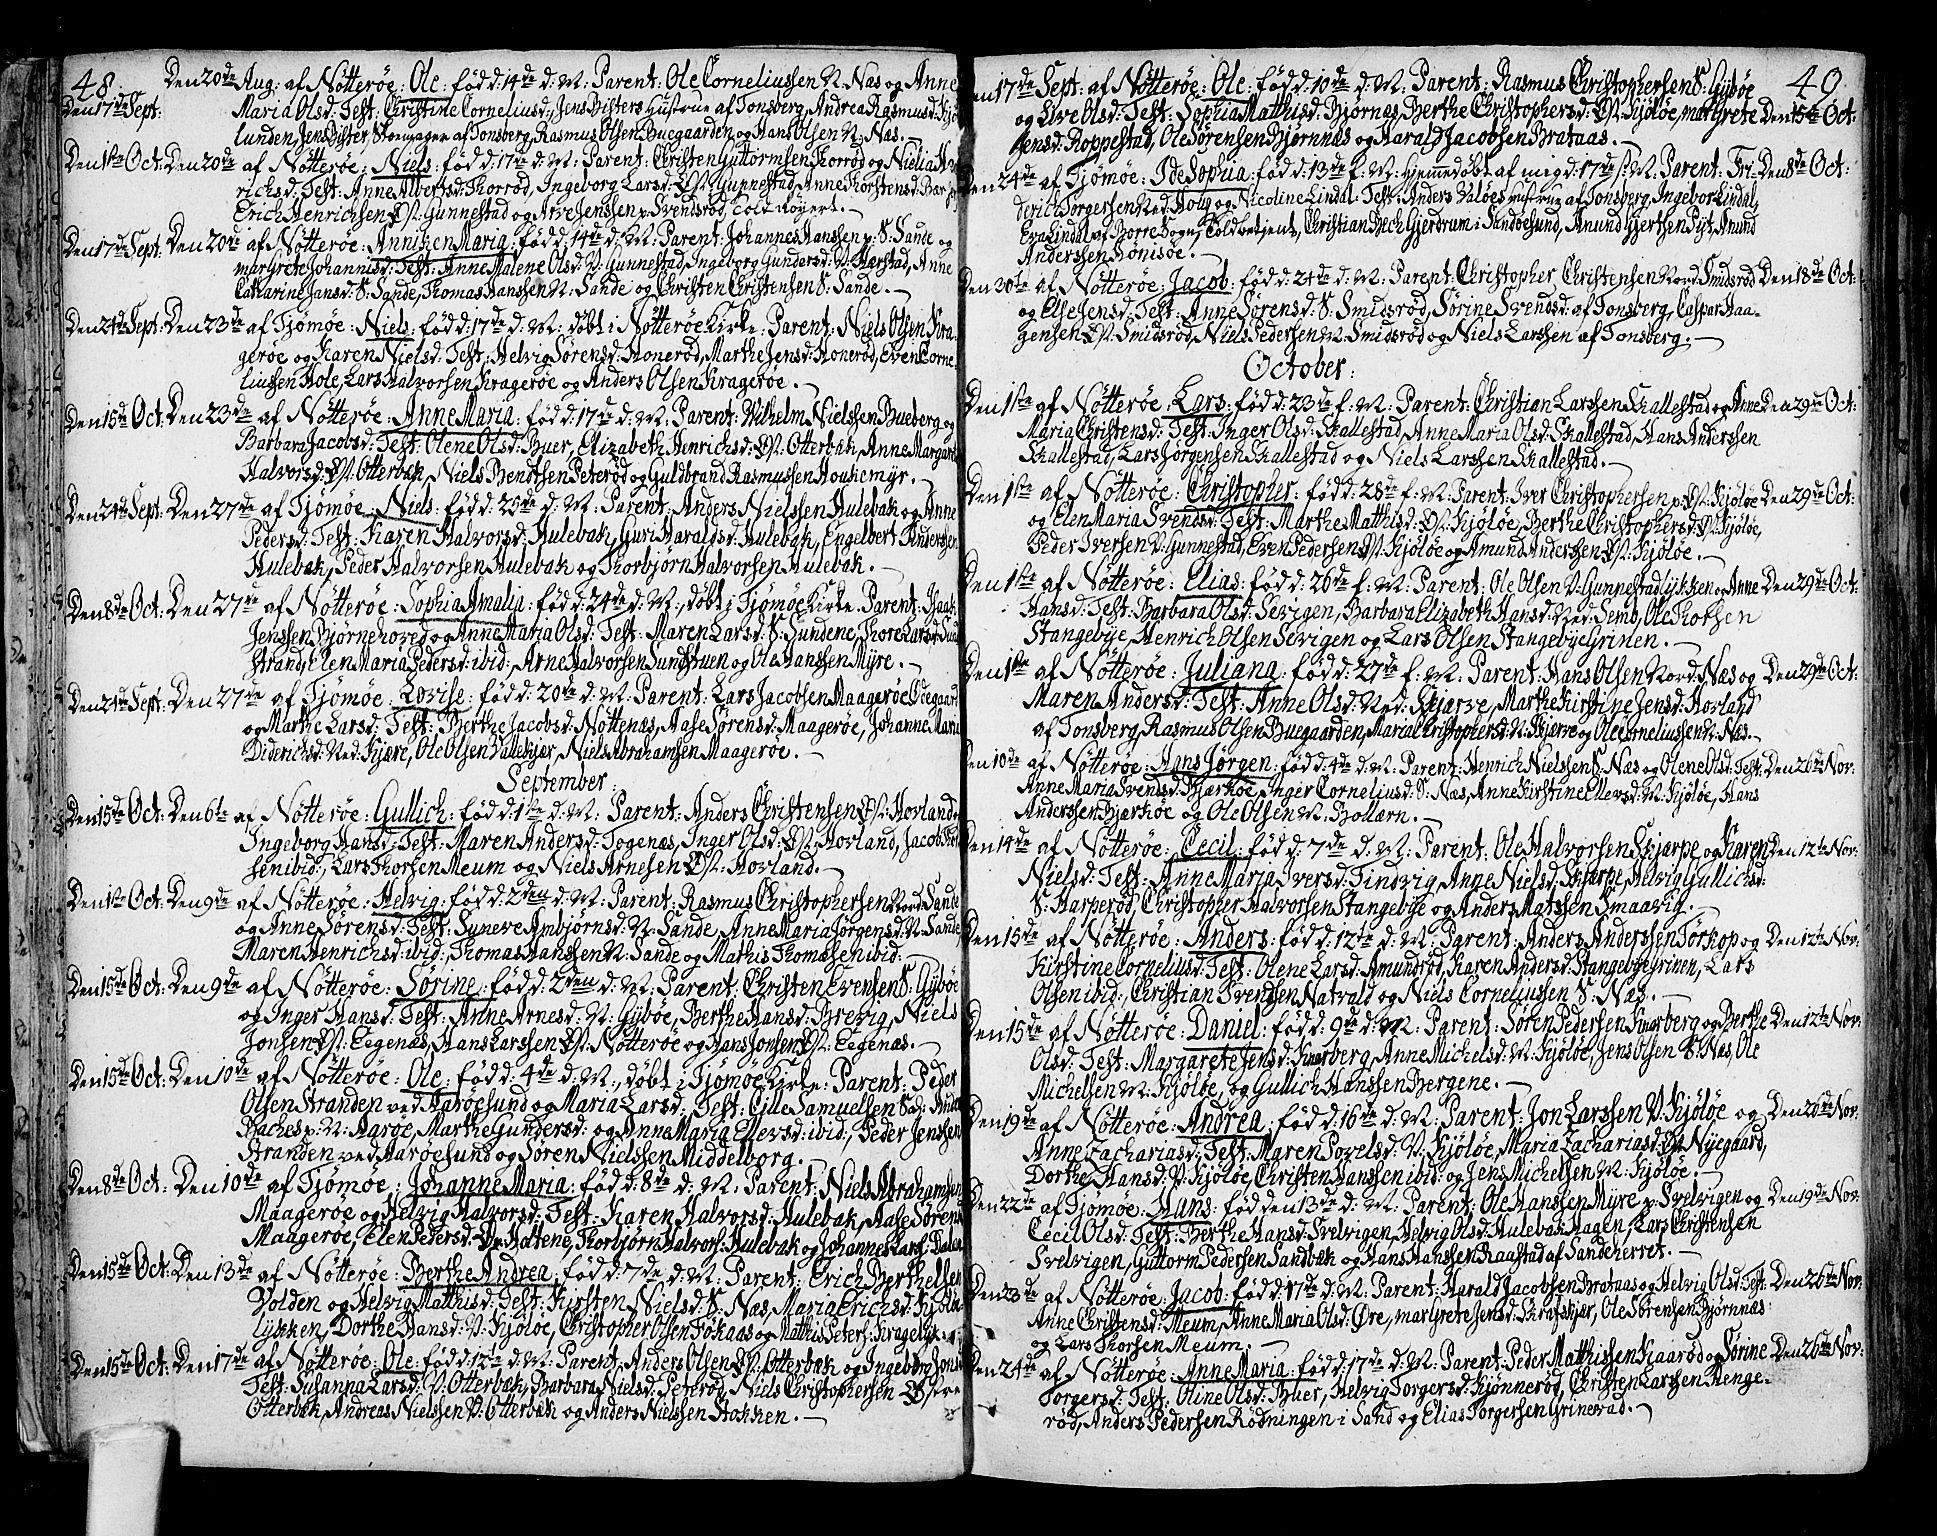 48.
Den 20de Aug: af Nötteröe: Ole: född: 14de d: M: Parent: Ole Corneliussen N. Næs og Anne
Den 17de Sept: Maria Olsd: Test: Christine Corneliusd:, Jens Bisters Hustrue af Tonsberg, Andrea Rasmusd:
lunden, Jens Bister, Stenmager af Tonsberg, Rasmus Olsen Buegaarden og Hans Olsen N: Næs.
Den 1ste Oct: Den 20de af Nötteröe: Niels: född: 17de d: M: Parent: Christen Guttormsen Thorröd og Nielia
richsd: Test: Anne Albertsd: Thorröd, Ingeborg Larsd: Öst: Gunnestad, Anne Thorstensd:
Erich Henrichsen Öst: Gunnestad og Arve Jenssen p: Svendsröd,
Den 17de Sept: Den 20de af Nötteröe: Anniken Maria: född: 14de d: M: Parent: Johannes Hanssen p: S: Sande og
margrete Johannisd: Test: Anne Malene Olsd: V: Gunnestad, Ingeborg Gundersd: V: Hærstad, Anne
Catharine Jansd: S: Sande, Thomas Hanssen N: Sande og Christen Christensen S: Sande.
Den 24de Sept: Den 23de af Tjömöe: Niels: född: 17de d: M: döbt i Nötteröe Kirke: Parent: Niels Olsen Kra-
geröe og Karen Nielsd: Test: Helvig Sörensd: Honeröd, Marthe Jensd: Honeröd, Even Corne-
liussen Hole, Lars Halvorsen Krageröe og Anders Olsen Krageröe.
Den 15de Oct: Den 23de af Nötteröe: Anne Maria: född: 17de d: M: Parent: Wilhelm Nielssen Bueberg og
Barbara Jacobsd: Test: Olene Olsd: Buer, Elizabeth Henrichsd: Öst: Otterbæk, Anne Margaret
Halvorsd: Öst: Otterbæk, Niels Bendtsen Peteröd og Guldbrand Rasmussen Houkemyr.
Den 24de Sept: Den 27de af Tjömöe: Niels: född: 25de d: M: Parent: Anders Nielssen Hulebak og Anne
Pedersd: Test: Karen Halvorsd: Hulebak, Guri Haraldsd: Hulebak, Engelbert Anderssen
Hulebak, Peder Halvorsen Hulebak og Thorbjörn Halvorsen Hulebak.
Den 8de Oct: Den 27de af Nötteröe: Sophia Amalia: född: 24de d: M:, döbt i Tjömöe Kirke: Parent: Isaak
Jenssen Björnehoved og Anne Maria Olsd: Test: Maren Larsd: S: Sundene, Thore Larsd: Sund
strand, Elen Maria Pedersd: ibid:, Arne Halvorsen Sundstuen og Ole Hanssen Myre.
Den 24de Sept: Den 27de af Tjömöe: Lovise: född: 20de d: M: Parent: Lars Jacobsen Maageröe Ödegaard
og Marthe Larsd: Test: Berthe Jacobsd: Nöttenæs, Aase Sörensd: Maageröe, Johanne Maria
Diderichsd: Ned: Kjære, Ole Olsen Vallekjær, Niels Abrahamsen Maageröe.
September:
Den 15de Oct: Den 6te af Nötteröe: Gullich: född: 1ste d: M: Parent: Anders Christensen Öst: Hovland og
Ingeborg Hansd: Test: Maren Andersd: Togenæs, Inger Olsd: Öst: Hovland, Jacob
sen ibid:, Lars Thorsen Meum og Niels Arnesen Öst: Hovland.
Den 1ste Oct: Den 9de af Nötteröe: Helvig: född: 2den d: M: Parent: Rasmus Christophersen Nord: Sande
og Anne Sörensd: Test: Syneve Ambjörnsd: N: Sande, Anne Maria Jörgensd: N: Sande
Maren Henrichsd: ibid:, Thomas Hanssen N: Sande og Mathis Thomæsen ibid:
Den 15de Oct: Den 9de af Nötteröe: Sörine: född: 2den d: M: Parent: Christen Evensen S: Gyböe
og Inger Hansd: Test: Anne Arnesd: N: Gyböe, Berthe Hansd: Brevig, Niels
Jonsen Öst: Tegenæs, Hans Larssen Öst: Nötteröe og Hans Jonsen Öst: Tegenæs.
Den 15de Oct: Den 10de af Nötteröe: Ole: född: 4de d: M:, döbt i Tjömöe Kirke: Parent: Peder
Olsen Stranden ved Aaröesund og Maria Larsd: Test: Cille Samuelsen
Baches p: N: Aaröe, Marthe Gundersd: og Anne Maria Ellevsd: ibid:, Peder Jenssen
Stranden ved Aaröesund og Sören Nielssen Middelborg.
Den 8de Oct: Den 10de af Tjömöe: Johanne Maria: född: 8de d: M: Parent: Niels Abrahamsen
Maageröe og Helvig Halvorsd: Test: Karen Halvorsd: Hulebak, Aase Sörensd
Maageröe, Elen Pedersd: Thorbjörn Halvors: Hulebak og Johannes Lars: Dalen
Den 15de Oct: Den 13de af Nötteröe: Berthe Andrea: född: 7de d: M: Parent: Erich Berthelsen
Volden og Helvig Mathisd: Test: Kirsten Nielsd: S: Næs, Maria Erichsd:
lykken, Dorthe Hansd: V: Kjölöe, Christopher Olsen Fökaas og Mathis Peters: Kragelyk.
Den 15de Oct: Den 17de af Nötteröe: Ole: född: 12te d: M: Parent: Anders Olsen Öst: Otterbæk og Ingeborg Jonsd
Test: Susanna Larsd: V: Otterbæk, Barbara Nielsd: Peteröd, Niels Christophersen Östre
Otterbæk, Andreas Nielssen V: Otterbæk og Anders Nielssen Stokken.
49.
Den 17de Sept: af Nötteröe: Ole: född: 10de d: M: Parent: Rasmus Christophersen S: Gyböe
og Live Olsd: Test: Sophia Mathisd: Björnes, Berthe Christophersd: Öst: Kjölöe, margrete Den 15de Oct:
Jensd: Roppestad, Ole Sörensen Björnnæs og Harald Jacobsen Brataas.
Den 24de af Tjömöe: Ide Sophia: född: 13de f: M: Hjemmedöbt af mig d: 17de f: M: Parent: Fri- Den 8de Oct:
derich Torgersen Ned: Holig og Nicoline Lindal: Test: Anders Valöes Hustrue af Tonsberg, Ingebor Lindal,
Eva Lindal af Borre Sogn, Toldbetjent, Christian Dich Gjerdrum i Sandöesund, Amund Gjertsen Pijt, Amund
Anderssen Bönisöe.
Den 30te af Nötteröe: Jacob: född: 24de d: M: Parent: Christopher Christensen Nord: Smidsröd Den 18de Oct:
og Else Jensd: Test: Anne Sörensd: S: Smidsröd, Sörine Svendsd: af Tonsberg, Caspar Haa-
gensen Öst: Smidsröd, Niels Pedersen N: Smidsröd og Niels Larssen af Tonsberg.
October:
Den 1ste af Nötteröe: Lars: född: 23de f: M: Parent: Christian Larssen Skallestad og Anne Den 29de Oct:
Maria Christensd: Test: Inger Olsd: Skallestad, Anne Maria Olsd: Skallestad, Hans Anderssen
Skallestad, Lars Jörgensen Skallestad og Niels Larssen Skallestad.
Den 1ste af Nötteröe: Christopher: född: 28de f: M: Parent: Iver Christophersen p: Öst: Kjölöe Den 29de Oct:
og Elen Maria Svendsd: Test: Marthe Matthisd: Öst: Kjölöe, Berthe Christophersd: Öst: Kjölöe,
Peder Iversen V: Gunnestad, Even Pedersen Öst: Kjölöe og Amund Anderssen Öst: Kjölöe.
Den 1ste af Nötteröe: Elias: född: 26de f: M: Parent: Ole Olsen V: Gunnestad lykken og Anne Den 29de Oct:
Hansd: Test: Barbara Olsd: Sevigen, Barbara Elizabeth Hansd: Ned: Semb, Ole Thorsen
Stangebye, Henrich Olsen Sevigen og Lars Olsen Stangebye Grinen.
Den 1ste af Nötteröe: Juliana: född: 27de f: M: Parent: Hans Olsen Nord: Næs og Den 29de Oct:
Maren Andersd: Test: Anne Olsd: Ned: Skjærve, Marthe Kirstine Jensd: Hovland
af Tonsberg, Rasmus Olsen Buegaarden, Maria Christophersd: N: Skjærve og Ole Corneliussen N: Næs.
Den 10de af Nötteröe: Hans Jörgen: född: 4de d: M: Parent: Henrich Nielssen S: Næs og Olene Olsd: Test: Den 26de Nov:
Anne Maria Svendsd: Bjærköe, Inger Corneliusd: S: Næs, Anne Kirstine Ellevsd: V: Kjölöe, Hans
Anderssen Bjærköe og Ole Olsen N: Bollærn.
Den 14de af Nötteröe: Cecil: född: 7de d: M: Parent: Ole Halvorsen Skjerpe og Karen Den 12te Nov:
Nielsd: Test: Anne Maria Iversd: Tindvig, Anne Nielsd: Skjerpe, Helvig Gullichsd:
S: Harperöd, Christopher Halvorsen Stangebye og Anders Matssen Smaavig.
Den 15de af Nötteröe: Anders: född: 12te d: M: Parent: Anders Anderssen Torkop og Den 12te Nov:
Kirstine Corneliusd: Test: Olene Larsd: Amundröd, Karen Andersd: Stangebye Grinen, Lars
Olsen ibid:, Christian Svendsen Natvald og Niels Corneliussen S: Næs.
Den 15de af Nötteröe: Daniel: född: 9de d: M: Parent: Sören Pedersen Knarberg og Berthe Den 12te Nov:
Olsd: Test: Margarete Jensd: Knarberg, Anne Michelsd: N: Kjölöe, Jens Olsen S: Næs, Ole
Michelsen N: Kjölöe, og Gullich Hanssen Bergene.
Den 19de af Nötteröe: Andrea: född: 16de d: M: Parent: Jon Larssen V: Kjölöe og Den 26de Nov:
Anne Zachariasd: Test: Maren Povelsd: V: Kjölöe, Maria Zachariasd: Öst: Nyegaard,
Dorthe Hansd: V: Kjölöe, Christen Hanssen ibid: og Jens Michelsen N: Kjölöe.
Den 22de af Tjömöe: Hans: född den 13de d: M: Parent: Ole Hanssen Myre p: Svelvigen og Den 19de Nov:
Cecil Olsd: Test: Berthe Hansd: Svelvigen, Helvig Olsd: Hulebak Hagen, Lars Christensen
Svelvigen, Guttorm Pedersen Sandbæk og Hans Hanssen Raastad af Sandeherret.
Den 23de af Nötteröe: Jacob: född: 17de d: M: Parent: Harald Jacobsen Brataas og Helvig Olsd: Test: Den 26de Nov:
Anne Christensd: Meum, Anne Maria Olsd: Öre, margrete Jensd: Skrafskjær, Ole Sörensen Björnnæs
og Lars Thorsen Meum.
Den 24de af Nötteröe: Anne Maria: född: 17de d: M: Parent: Peder Matthissen Kaaröd og Sörine Den 26de Nov:
Torgersd: Test: Oline Olsd: Buer, Helvig Torgersd: Kjönneröd, Christen Larssen Henge-
röd, Anders Pedersen Rödningen i Sand og Elias Torgersen Grineröd.